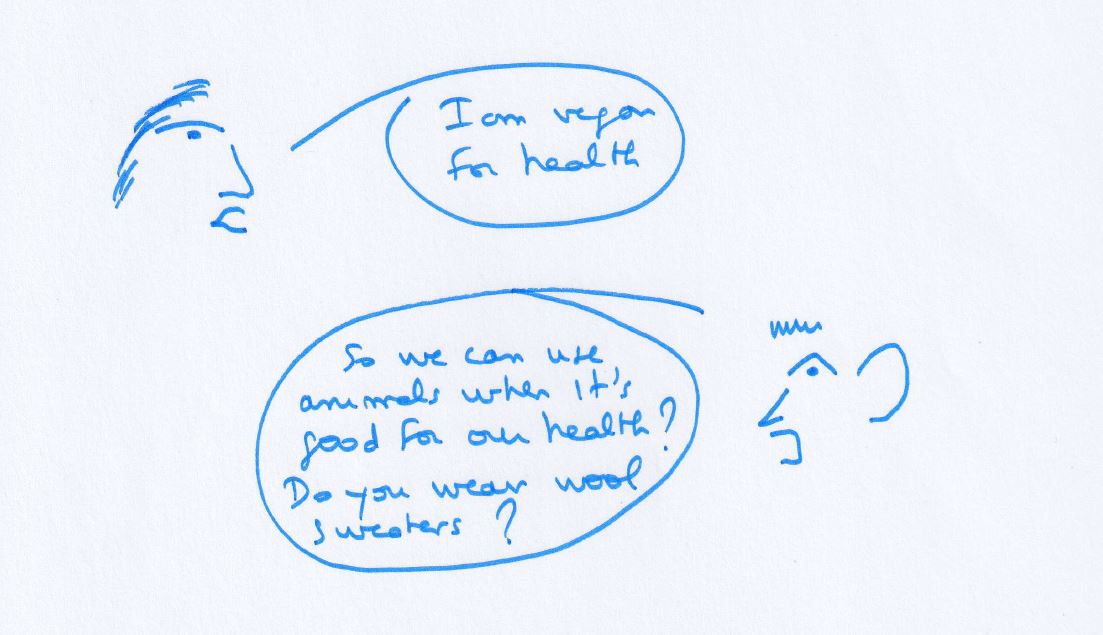 I am vegan
for health
So we can use
animals when it's
good for our health?
Do you wear wool
sweaters ?